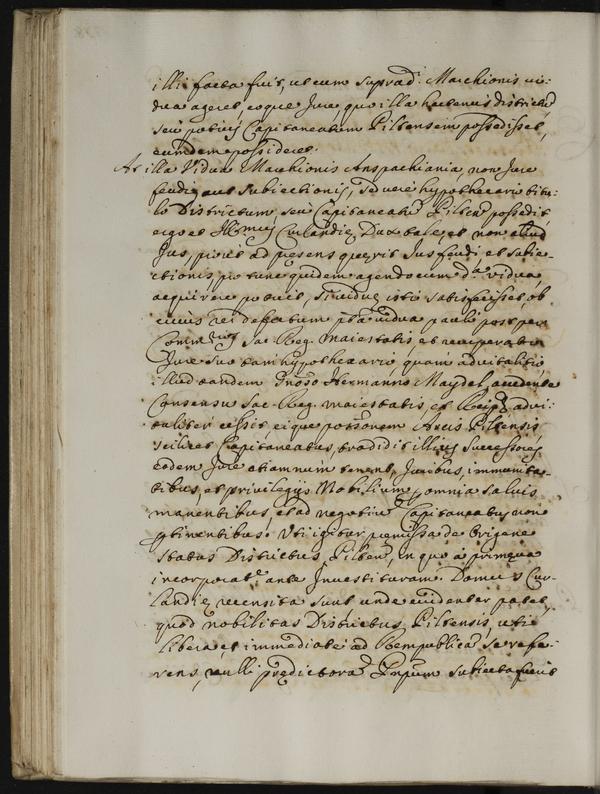 illi facta fuit, ut cum suprad: Marchionis vi-
dua ageret, eoque Jure quo illa hactenus districtū
seu potius Capitaneatum Piltensem possedisset,
eumdem possideret.
At illa Vidua Marchionis Anspachiania, non Jure
feudi aut Subiectionis, sed vero hypothecario titu-
lo Districtum, seu Capitaneatū Pilten: possedit
ergo et Illmus Curlandiæ Dux tale, et non aliud
Jus, prout ad præsens quærit Jus feudi et subie-
ctionis, pro tunc quidem agendo cum da vidua,
acquirere potuit, si viduæ isti satisfecisset, ob
cuius rei defectum vidua paulo post per
Commrios Sac: Reg. maiestatis et recuperato
Jure suo tam hypothecario quam advitalitio
illud tandem Gnoso Hermanno Maydel, accedente
Consensu Sac: Reg. maiestatis, et Reipub: advi-
taliter cessit, eique possionem Arcis Piltensis
scilicet Capitaneatus, tradidit illius Successores
eodem Jure etiamnum tenent, Juribus, immunita-
tibus, et privilegijs Nobilium p omnia salvis
manentibus, et ad negotiū Capitaneatus non
ptinentibus. Uti igitur præmissa de Origene
status Districtus Pilten: in quo a primæva
incorporate ante Investituram Domus Cur-
landiæ recensita sunt unde evidenter patet,
quod nobilitas Districtus Piltensis, uti
libera et immediate ad Rempublicā se refe-
rens, nulli prædictorū Prpum subiecta fuerit